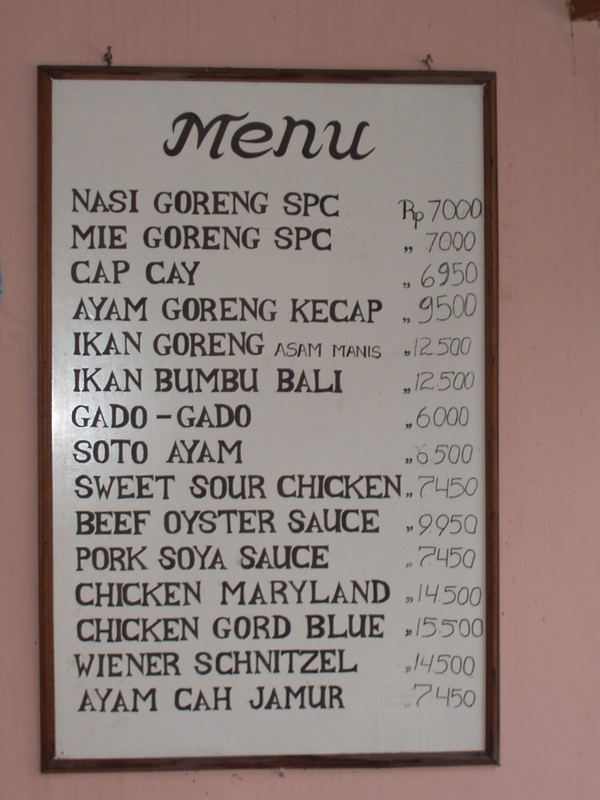 Menu
NASI GORENG SPC Rp 7000
MIE GORENG SPC „ 7000
CAP CAY „ 6950
AYAM GORENG KECAP „ 9500
IKAN GORENG ASAM MANIS „ 12.500
IKAN BUMBU BALI „ 12.500
GADO-GADO „ 6.000
SOTO AYAM „ 6500
SWEET SOUR CHICKEN „ 7450
BEEF OYSTER SAUCE „ 9.950
PORK SOYA SAUCE „ 7450
CHICKEN MARYLAND „ 14.500
CHICKEN GORD BLUE „ 15.500
WIENER SCHNITZEL „ 14500
AYAM CAH JAMUR „ 7450